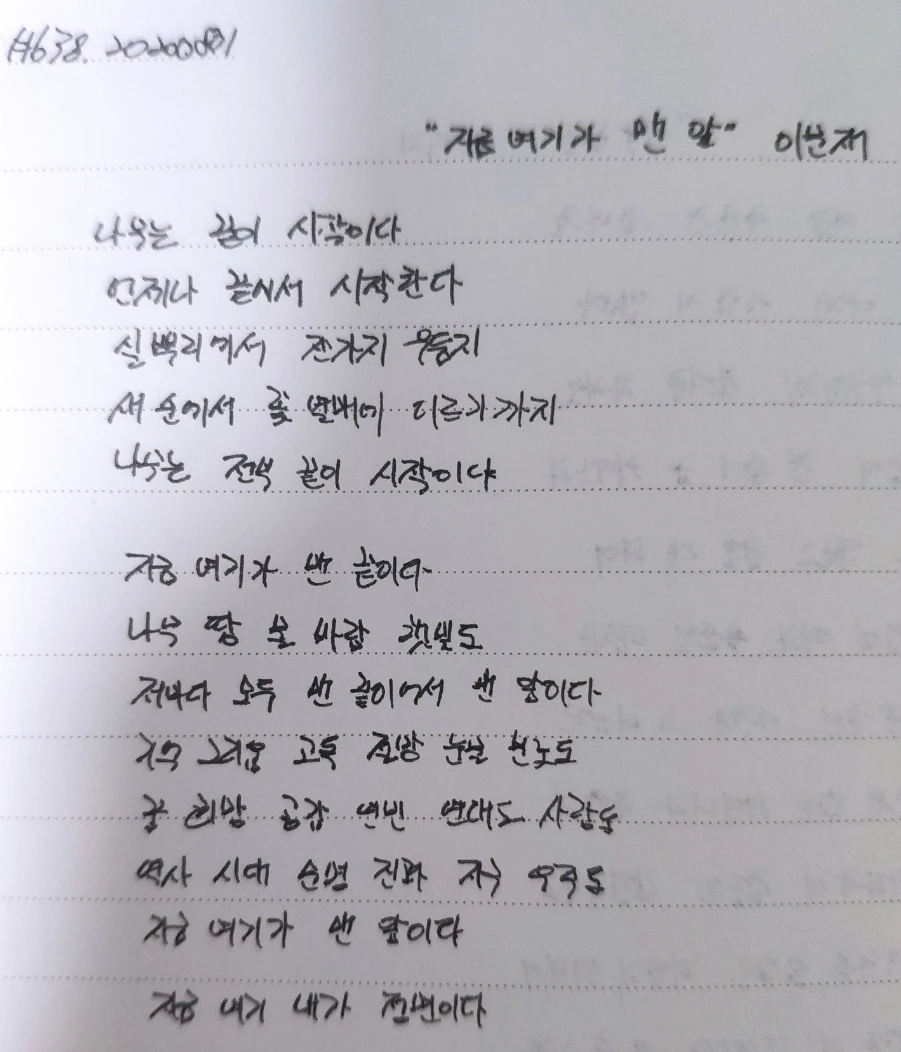 #638. 20200831
"지금 여기가 맨 앞" 이문재
나무는 끝이 시작이다
언제나 끝에서 시작한다
실뿌리에서 잔가지 우듬지
새순에서 꽃 열매에 이르기까지
나무는 전부 끝이 시작이다
지금 여기가 맨 끝이다
나무 땅 물 바람 햇빛도
저마다 모두 맨 끝이어서 맨 앞이다
기억 그리움 고독 절망 눈물 분노도
꿈 희망 공감 연민 연대도 사랑도
역사 시대 문명 진화 지구 우주도
지금 여기가 맨 앞이다
지금 여기 내가 정면이다